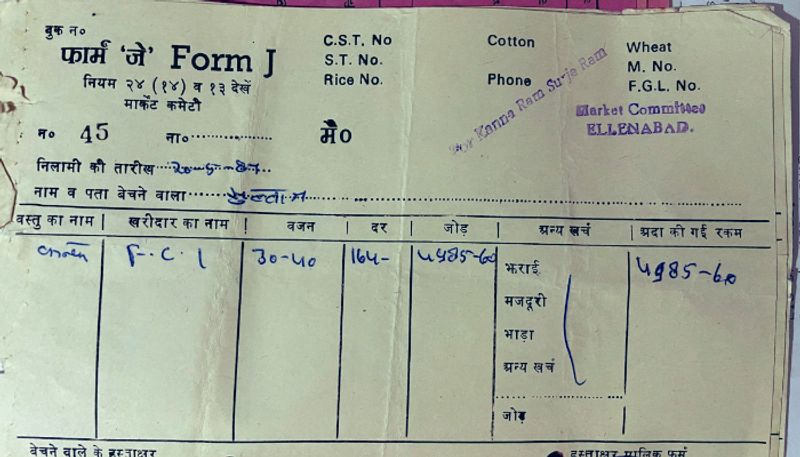 बुक न०
फार्म 'जे' Form J
नियम २४ (१४) व १३ देखें
मार्केट कमेटी
C.S.T. No
S.T. No.
Rice No.
Cotton
Phone
Wheat
M. No.
F.G.L. No.
Kanna Ram Surja Ram
Market Committee
ELLENABAD.
न० 45 ना०
मै०
निलामी की तारीख २०-५-८७
नाम व पता बेचने वाला
वस्तु का नाम | खरीदार का नाम | वजन | दर | जोड़ | अन्य खर्च | अदा की गई रकम
F.C.I 30-40 164- ५985-60 ५985-60
झराई
मजदूरी
भाड़ा
अन्य खर्च
जोड़
बेचने वाले के हस्ताक्षर
हस्ताक्षर मालिक फर्म